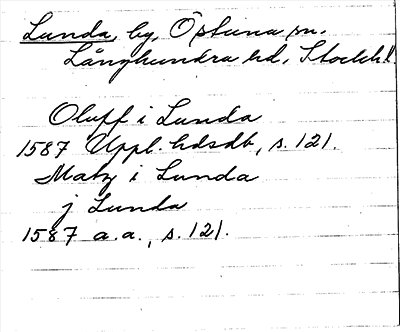 Lunda, by, Östuna sn.
Långhundra hd, Stockh. l.
Oluff i Lunda
1587 Uppl. hdsdb, s. 121.
Matz i Lunda
j Lunda
1587 a.a., s. 121.